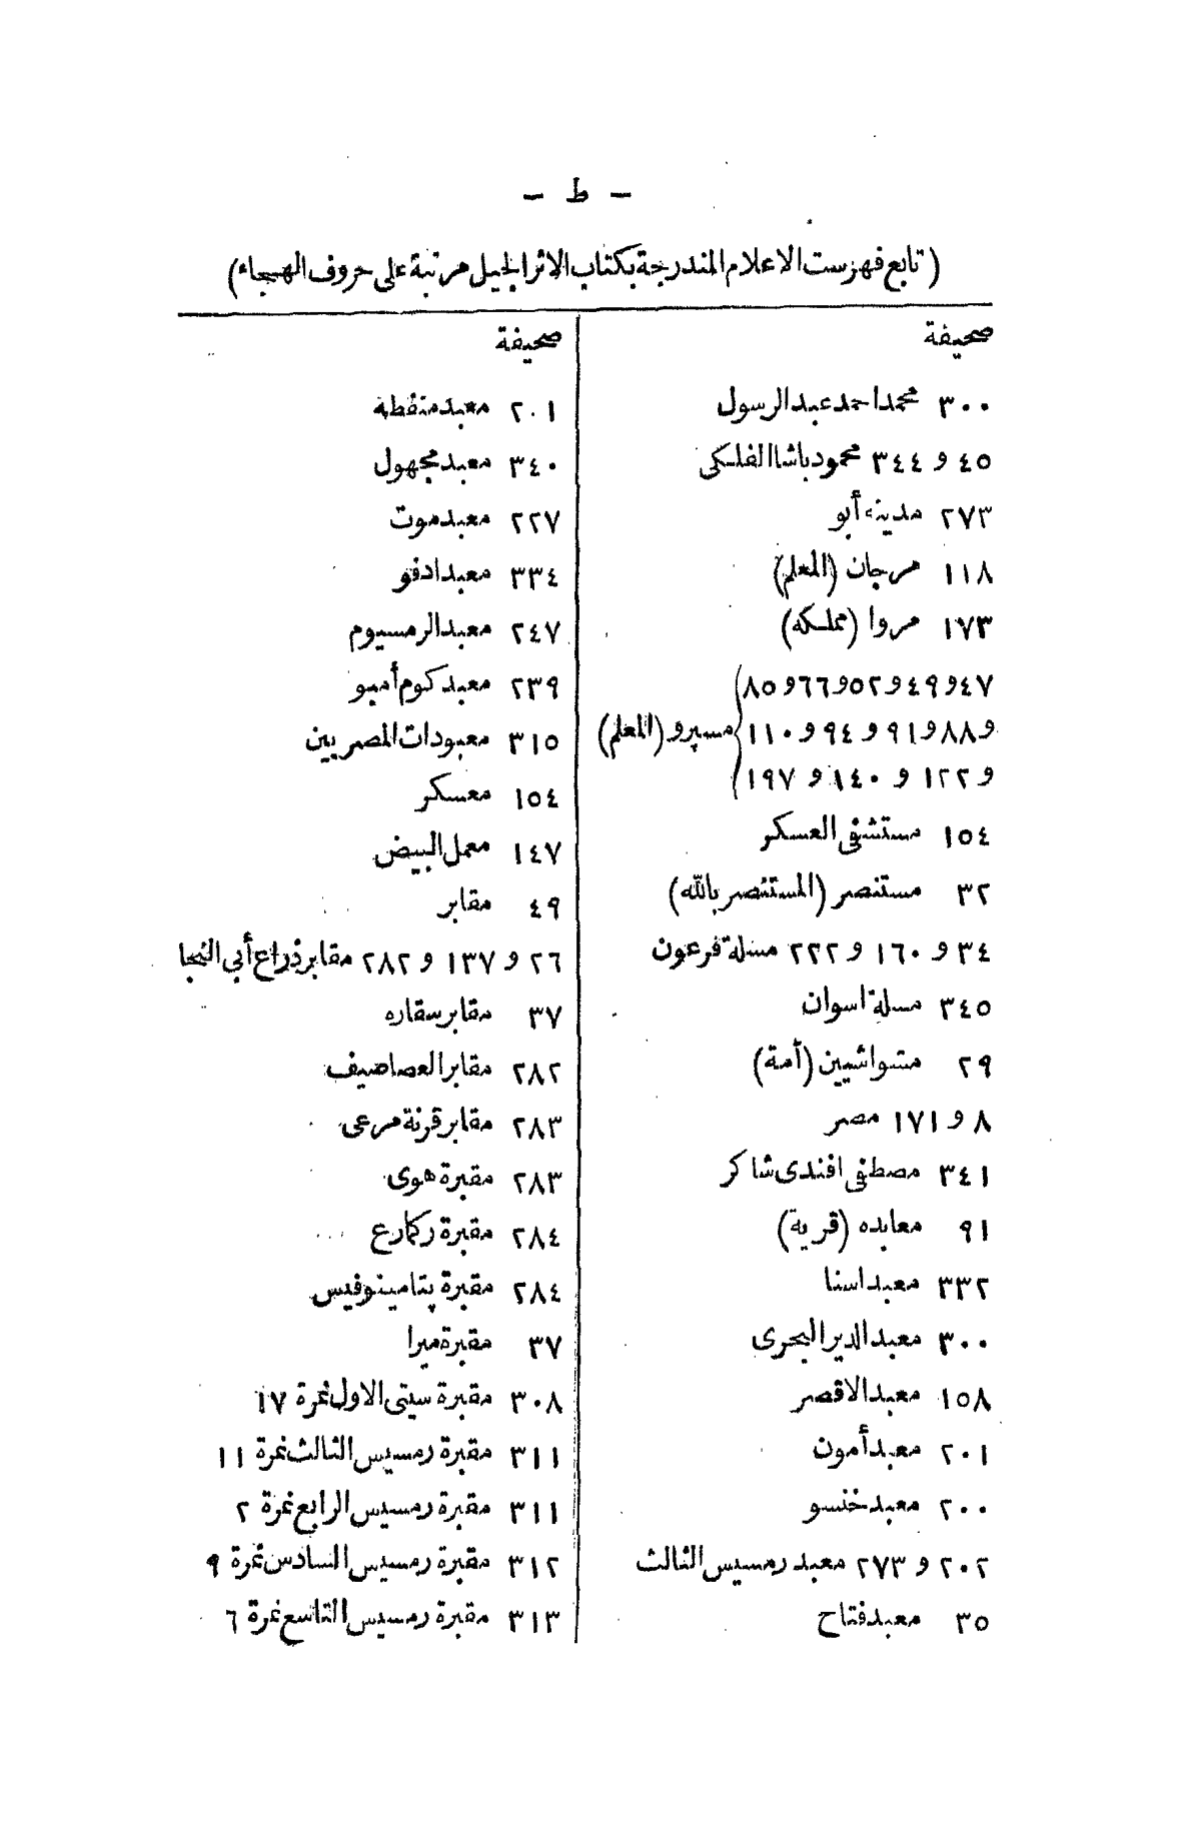 - ط -
(تابع فهرست الاعلام المندرجة بكتاب الاثر الجليل مرتبة على حروف الهجاء)
صحيفة
٣٠٠ محمد احمد عبد الرسول
٤٥ و ٣٤٤ محمود باشا الفلكى
٢٧٣ مدينة أبو
١١٨ مرجان (المعلم)
١٧٣ مروا (مملكة)
٤٧ و ٤٩ و ٥٢ و ٦٦ و ٨٥
و ٨٨ و ٩١ و ٩٤ و ١١٠ مسپرو (المعلم)
و ١٢٢ و ١٤٠ و ١٩٧
١٥٤ مستشفى العسكر
٣٢ مستنصر (المستنصر بالله)
٣٤ و ١٦٠ و ٢٢٢ مسلة فرعون
٣٤٥ مسلة اسوان
٢٩ مشواشيين (أمة)
٨ و ١٧١ مصر
٣٤١ مصطفى افندى شاكر
٩١ معابده (قرية)
٣٣٢ معبد اسنا
٣٠٠ معبد الدير البحرى
١٥٨ معبد الاقصر
٢٠١ معبد أمون
٢٠٠ معبد خنسو
٢٠٢ و ٢٧٣ معبد رمسيس الثالث
٣٥ معبد فتاح
صحيفة
٢٠١ معبد منفطه
٣٤٠ معبد مجهول
٢٢٧ معبد موت
٣٣٤ معبد ادفو
٢٤٧ معبد الرمسيوم
٢٣٩ معبد كوم أمبو
٣١٥ معبودات المصريين
١٥٤ معسكر
١٤٧ معمل البيض
٤٩ مقابر
٢٦ و ١٣٧ و ٢٨٢ مقابر ذراع أبى النجا
٣٧ مقابر سقاره
٢٨٢ مقابر العصاصيف
٢٨٣ مقابر قرنة مرعى
٢٨٣ مقبرة هوى
٢٨٤ مقبرة ركمارع
٢٨٤ مقبرة پتامينوفيس
٣٧ مقبرة ميرا
٣٠٨ مقبرة سيتى الاول نمرة ١٧
٣١١ مقبرة رمسيس الثالث نمرة ١١
٣١١ مقبرة رمسيس الرابع نمرة ٢
٣١٢ مقبرة رمسيس السادس نمرة ٩
٣١٣ مقبرة رمسيس التاسع نمرة ٦